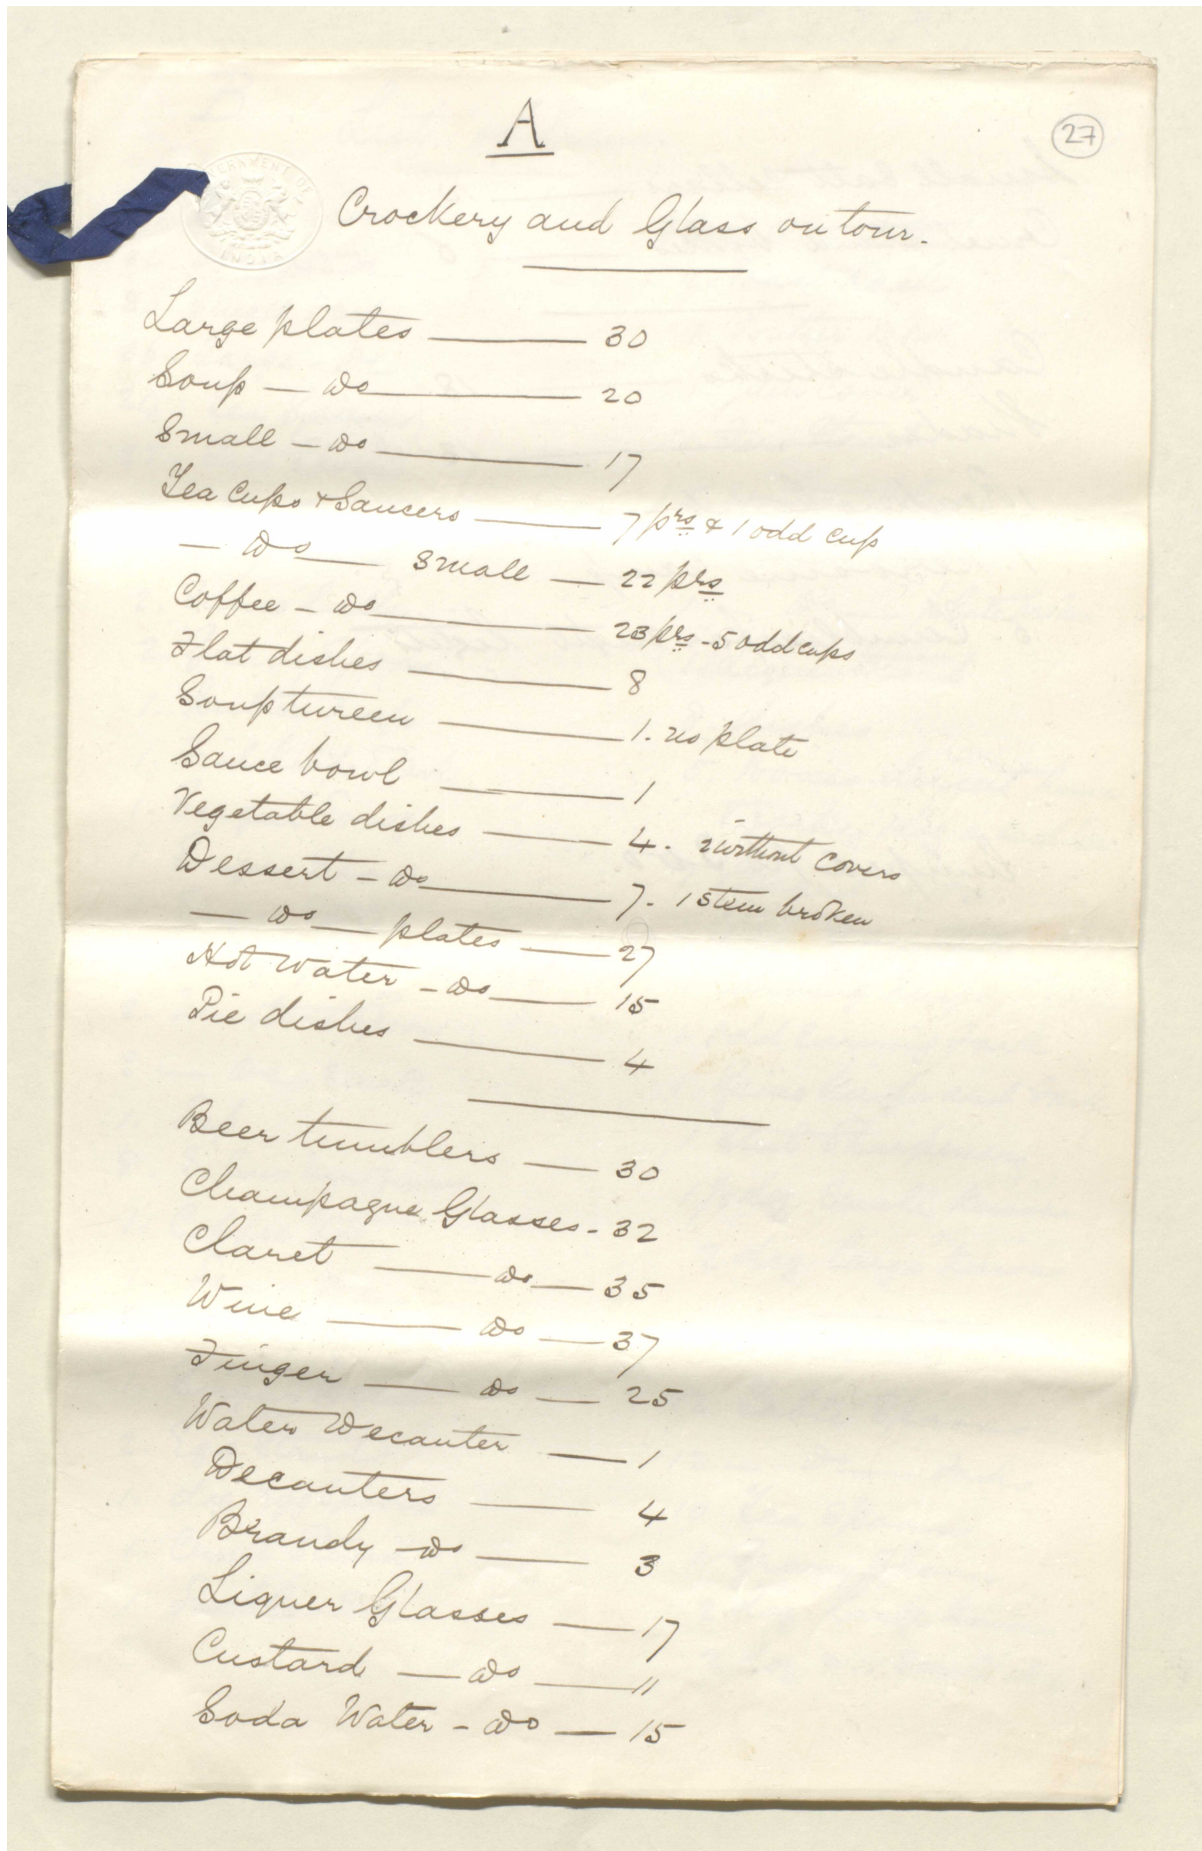 A
27
GOVERNMENT OF
INDIA
Crockery and Glass on tour.
Large plates — 30
Soup — do — 20
Small — do — 17
Tea Cups & Saucers — 7 prs & 1 odd cup
— do — Small — 22 prs
Coffee — do — 23 prs - 5 odd cups
Flat dishes — 8
Soup tureen — 1. no plate
Sauce bowl — 1
Vegetable dishes — 4. without covers
Dessert — do — 7. 1 stem broken
— do — plates — 27
Hot water — do — 15
Pie dishes — 4
Beer tumblers — 30
Champagne Glasses - 32
Claret — do — 35
Wine — do — 37
Finger — do — 25
Water Decanter — 1
Decanters — 4
Brandy — do — 3
Liquer Glasses — 17
Custard — do — 11
Soda Water - do — 15